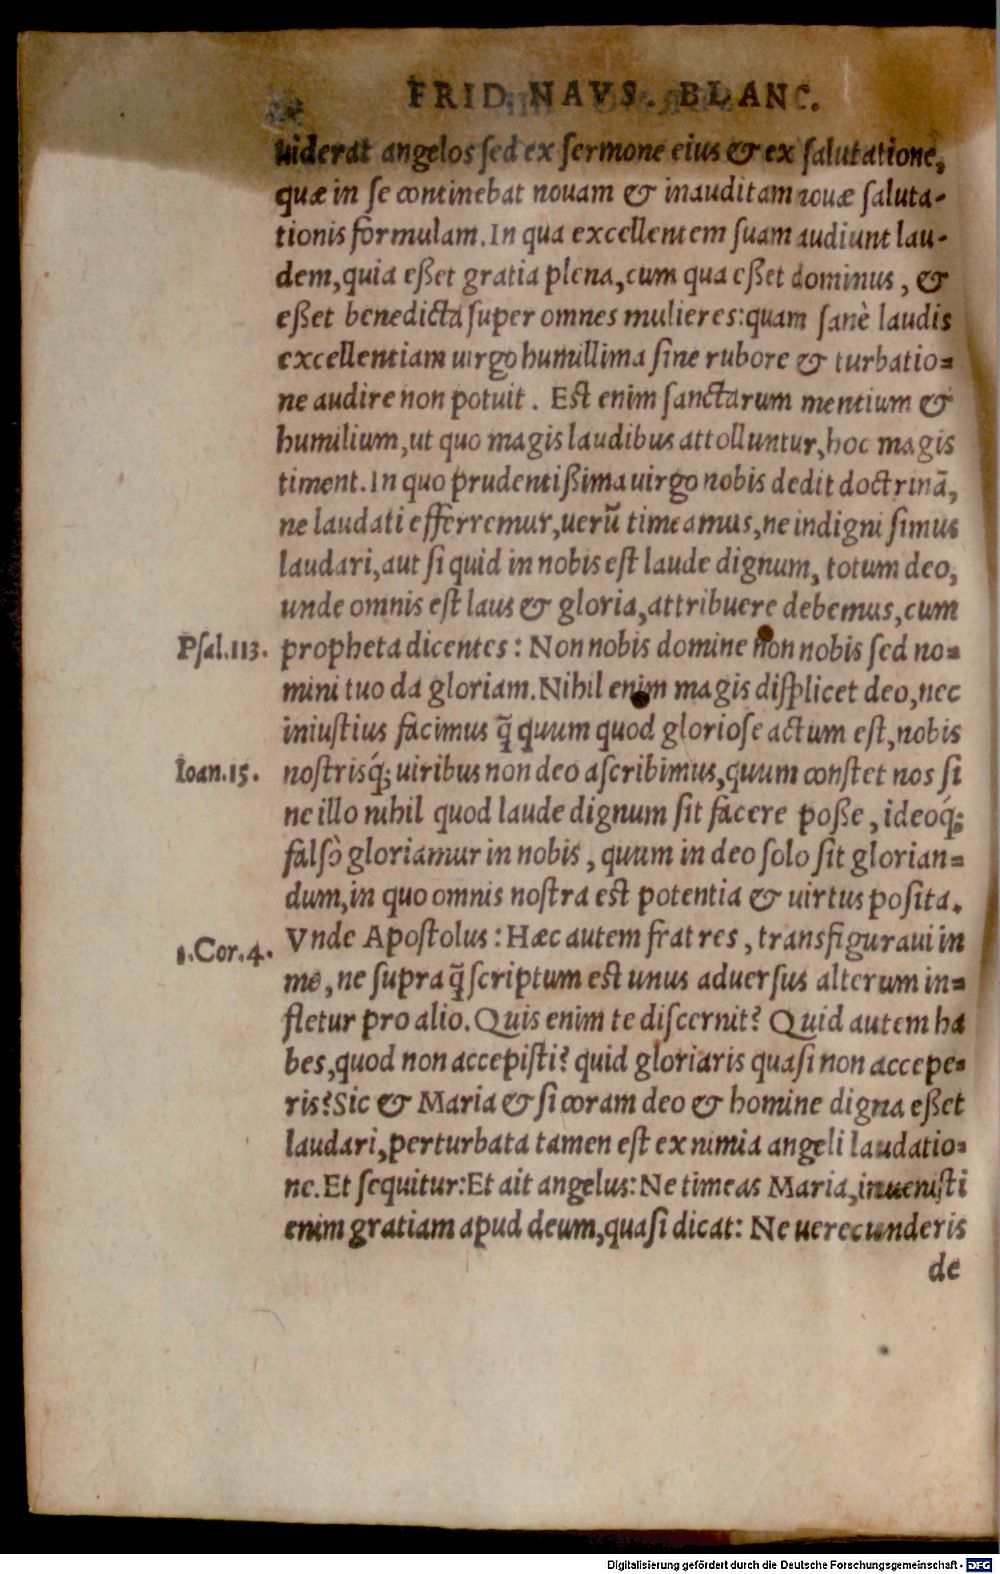 FRID. NAVS. BLANC.
uiderat angelos sed ex sermone eius & ex salutatione,
quæ in se continebat nouam & inauditam nouæ saluta-
tionis formulam. In qua excellentem suam audiunt lau-
dem, quia eßet gratia plena, cum qua eßet dominus, &
eßet benedicta super omnes mulieres: quam sanè laudis
excellentiam uirgo humillima sine rubore & turbatio=
ne audire non potuit. Est enim sanctarum mentium &
humilium, ut quo magis laudibus attolluntur, hoc magis
timent. In quo prudentißima uirgo nobis dedit doctrinā,
ne laudati efferremur, uerū timeamus, ne indigni simus
laudari, aut si quid in nobis est laude dignum, totum deo,
unde omnis est laus & gloria, attribuere debemus, cum
Psal. 113. propheta dicentes: Non nobis domine non nobis sed no=
mini tuo da gloriam. Nihil enim magis displicet deo, nec
iniustius facimus q̄ quum quod gloriose actum est, nobis
Ioan. 15. nostrisq́; uiribus non deo ascribimus, quum constet nos si
ne illo nihil quod laude dignum sit facere poße, ideoq́;
falsò gloriamur in nobis, quum in deo solo sit glorian=
dum, in quo omnis nostra est potentia & uirtus posita.
1. Cor. 4. Vnde Apostolus: Hæc autem fratres, transfiguraui in
me, ne supra q̄ scriptum est unus aduersus alterum in=
fletur pro alio. Quis enim te discernit? Quid autem ha
bes, quod non accepisti? quid gloriaris quasi non accepe=
ris? Sic & Maria & si coram deo & homine digna eßet
laudari, perturbata tamen est ex nimia angeli laudatio=
ne. Et sequitur: Et ait angelus: Ne timeas Maria, inuenisti
enim gratiam apud deum, quasi dicat: Ne uerecunderis
de
Digitalisierung gefördert durch die Deutsche Forschungsgemeinschaft - DFG